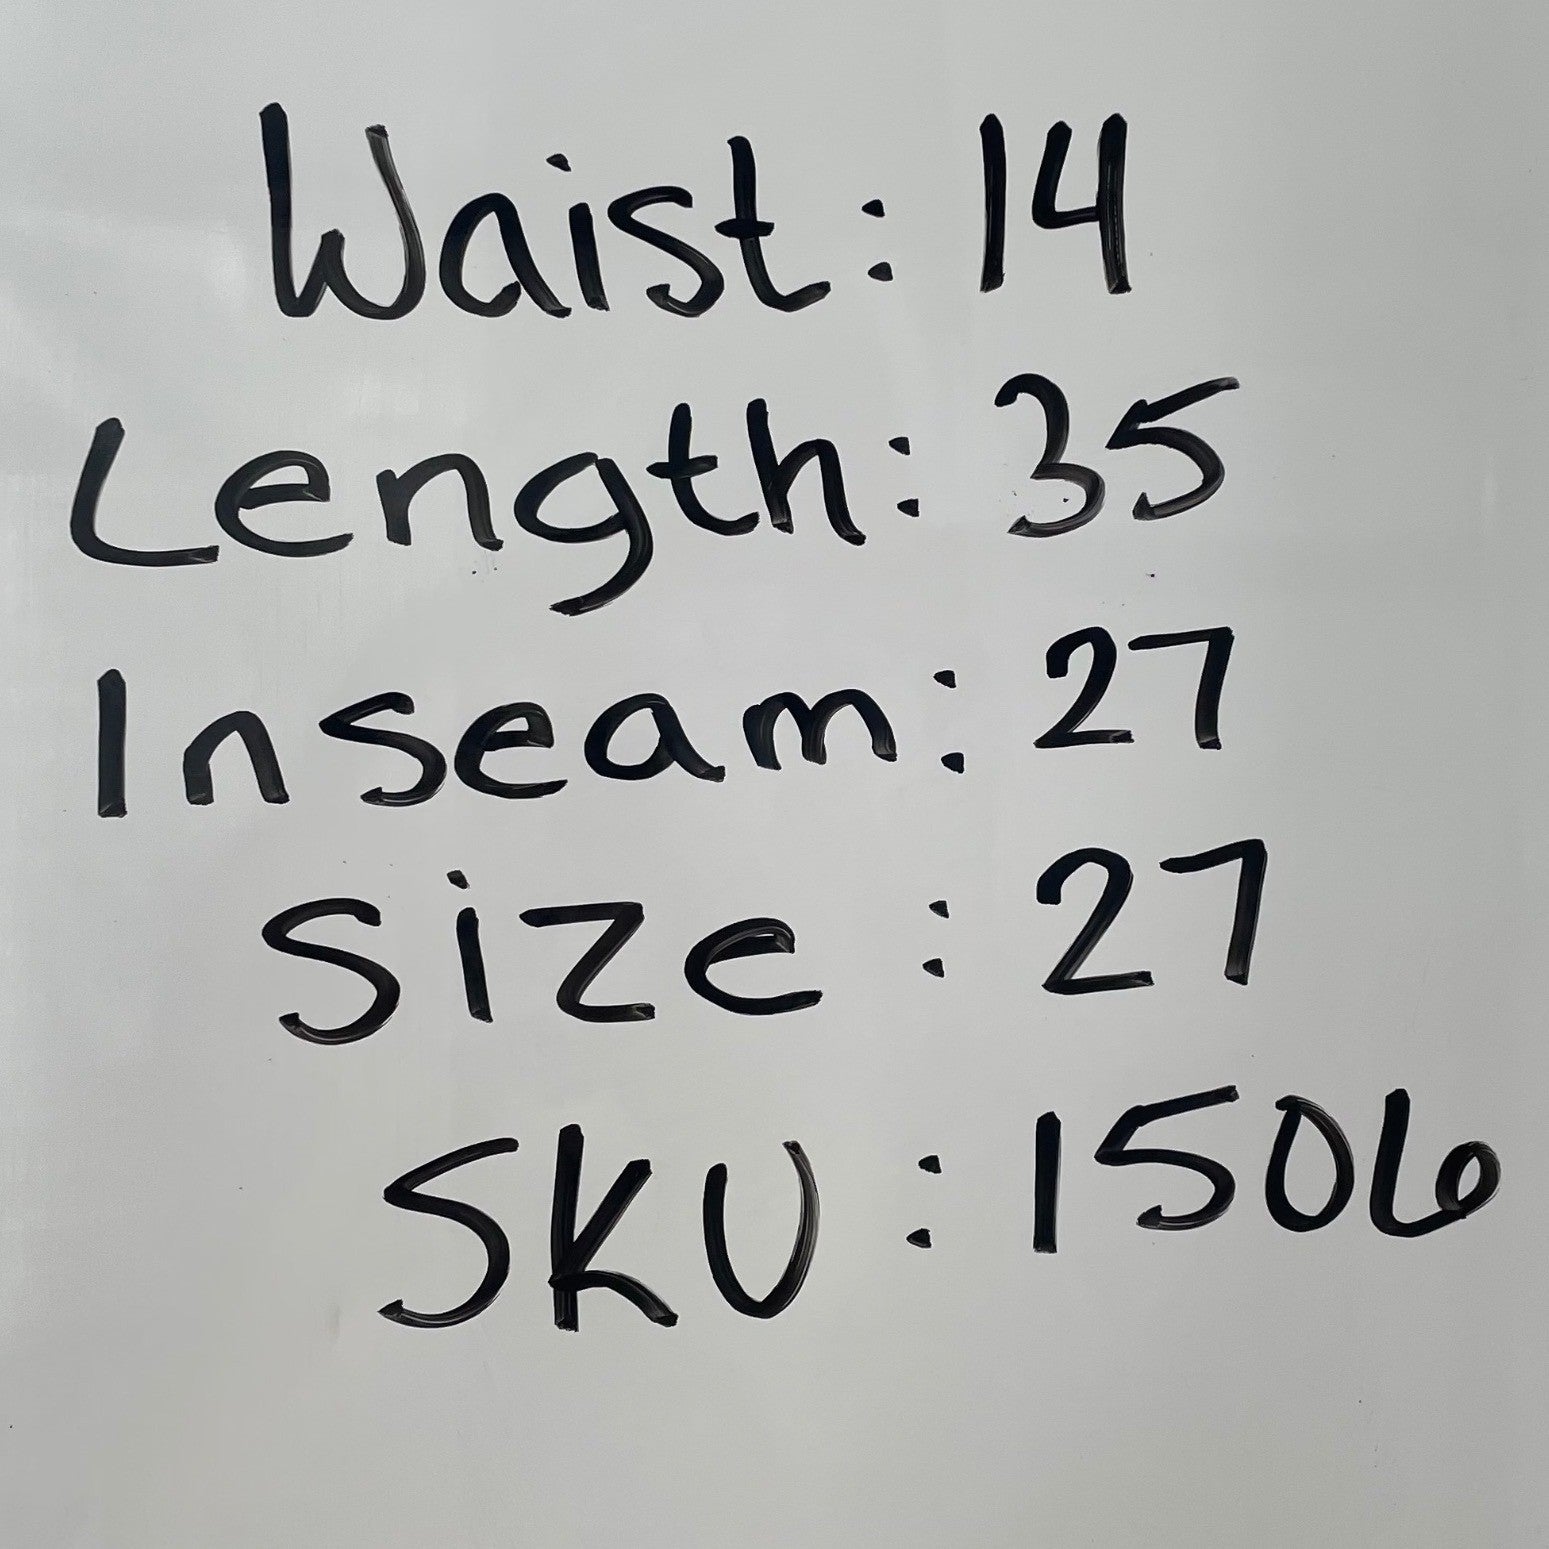 Waist: 14
Length: 35
Inseam: 27
Size: 27
SKU: 1506